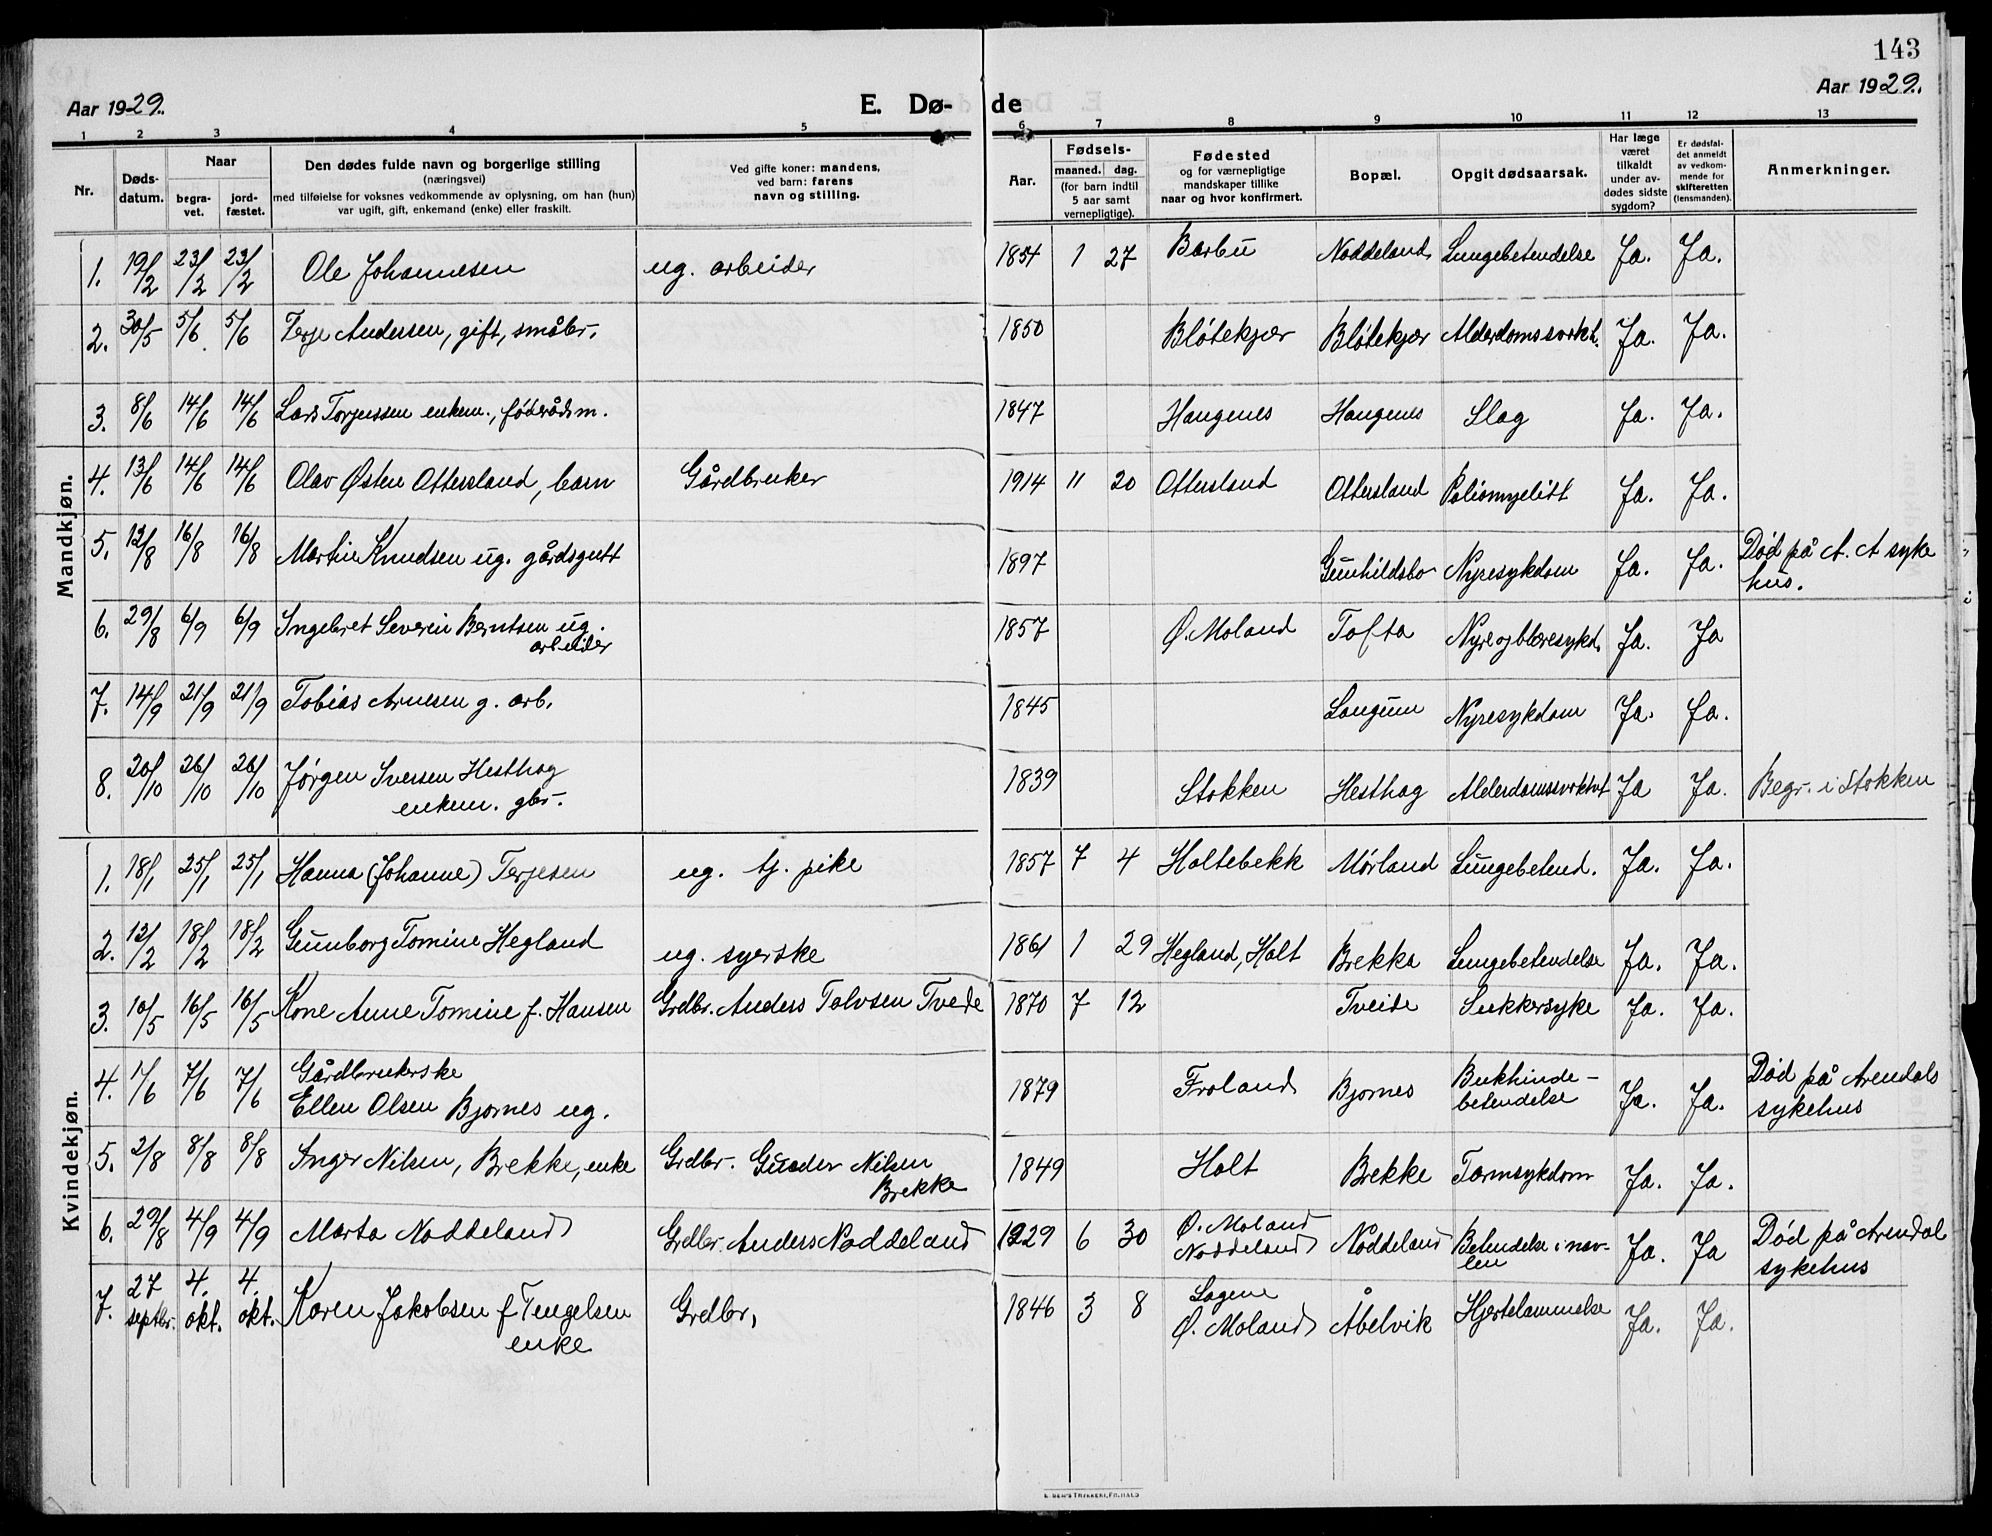 143
Aar 1929. E. Dø- de Aar 1929.
1 2 3 4 5 6 7 8 9 10 11 12 13
Nr. Døds-datum. Naar begra-vet. jord-fæstet. Den dødes fulde navn og borgerlige stilling (næringsvei) med tilføielse for voksnes vedkommende av oplysning, om han (hun) var ugift, gift, enkemand (enke) eller fraskilt. Ved gifte koner: mandens, ved barn: farens navn og stilling. Aar. Fødsels- maaned. dag. (for barn indtil 5 aar samt vernepligtige). Fødested og for værnepligtige mandskaper tillike naar og hvor konfirmert. Bopæl. Opgit dødsaarsak. Har læge været tilkaldt under av-dødes sidste sygdom? Er dødsfal-det anmeldt av vedkom-mende for skifteretten (lensmanden). Anmerkninger.
Mandkjøn.
1. 19/2 23/2 23/2 Ole Johannesen ug. arbeider 1854 1 27 Barbu Noddeland Lungebetendelse Ja. Ja.
2. 30/5 5/6 5/6 Terje Andersen, gift, småbr. 1850 Bløtekjær Bløtekjær Alderdomssvækk. Ja. Ja.
3. 8/6 14/6 14/6 Lars Torjussen enkem., føderådsm. 1847 Haugenes Haugenes Slag Ja. Ja.
4. 13/6 14/6 14/6 Olav Østen Ottersland, barn Gårdbruker 1914 11 20 Ottersland Ottersland Poliomyelitt Ja. Ja.
5. 12/8 16/8 16/8 Martin Knudsen ug. gårdsgutt 1897 Gunhildsbo Nyresykdom Ja. Ja. Død på A. A syke
hus.
6. 29/8 6/9 6/9 Ingebret Severin Berntsen ug. 1857 Ø. Moland Tofta Nyre og blæresykd. Ja. Ja
arbeider
7. 14/9 21/9 21/9 Tobias Arnesen g. arb. 1845 Langum Nyresykdom Ja. Ja.
8. 20/10 26/10 26/10 Jørgen Iversen Hesthag 1839 Stokken Hesthag Alderdomssvækket Ja Ja. Begr. i Stokken
enkem. gbr.
Kvindekjøn.
1. 18/1 25/1 25/1 Hanna (Johanne) Terjesen ug. tj. pike 1857 7 4 Holtebekk Mørland Lungebetend. Ja. Ja.
2. 12/2 18/2 18/2 Gunborg Tomine Hegland ug. syerske 1861 1 29 Hegland, Holt Brekka Lungebetendelse Ja. Ja.
3. 10/5 16/5 16/5 Kone Anne Tomine f. Hansen Grdbr. Anders Tolvsen Tvede 1870 7 12 Tveide Sukkersyke Ja. Ja.
4. 1/6 7/6 7/6 Gårdbrukerske
Ellen Olsen Bjornes ug. 1879 Froland Bjornes Bukhinde-
betendelse Ja. Ja. Død på Arendals
sykehus
5. 2/8 8/8 8/8 Inger Nilsen, Brekke, enke Grdbr. Gunder Nilsen
Brekke 1849 Holt Brekke Tarmsykdom Ja. Ja.
6. 29/8 4/9 4/9 Marta Noddeland Grdbr. Anders Noddeland 1929 6 30 Ø. Moland
Noddeland Noddeland Betendelse i nav-
len Ja. Ja Død på Arendal
sykehus
7. 27 septbr. 4. okt. 4. okt. Karen Jakobsen f. Tengelsen
enke Grdbr, 1846 3 8 Lagene
Ø. Moland Åbelvik Hjertelammelse Ja. Ja.